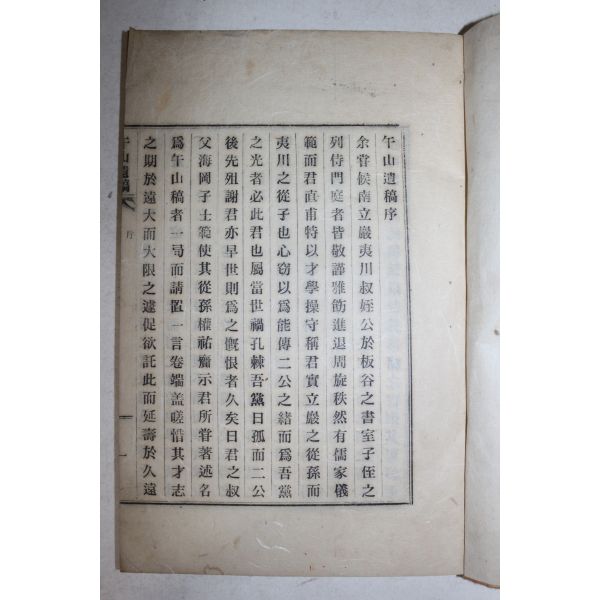 午山遺稿序
余嘗候南立巖夷川叔姪公於板谷之書室子侄之
列侍門庭者皆敬謹雅飭進退周旋秩然有儒家儀
範而君直甫特以才學操守稱君實立巖之從孫而
夷川之從子也心窃以爲能傳二公之緖而爲吾黨
之光者必此君也屬當世禍孔棘吾黨日孤而二公
後先殂謝君亦早世則爲之慨恨者久矣日君之叔
父海岡子士範使其從孫權祐示君所嘗著述名
爲午山稿者一局而請置一言卷端盖嗟惜其才志
之期於遠大而大限之遽促欲託此而延壽於久遠
午山遺稿
序
一